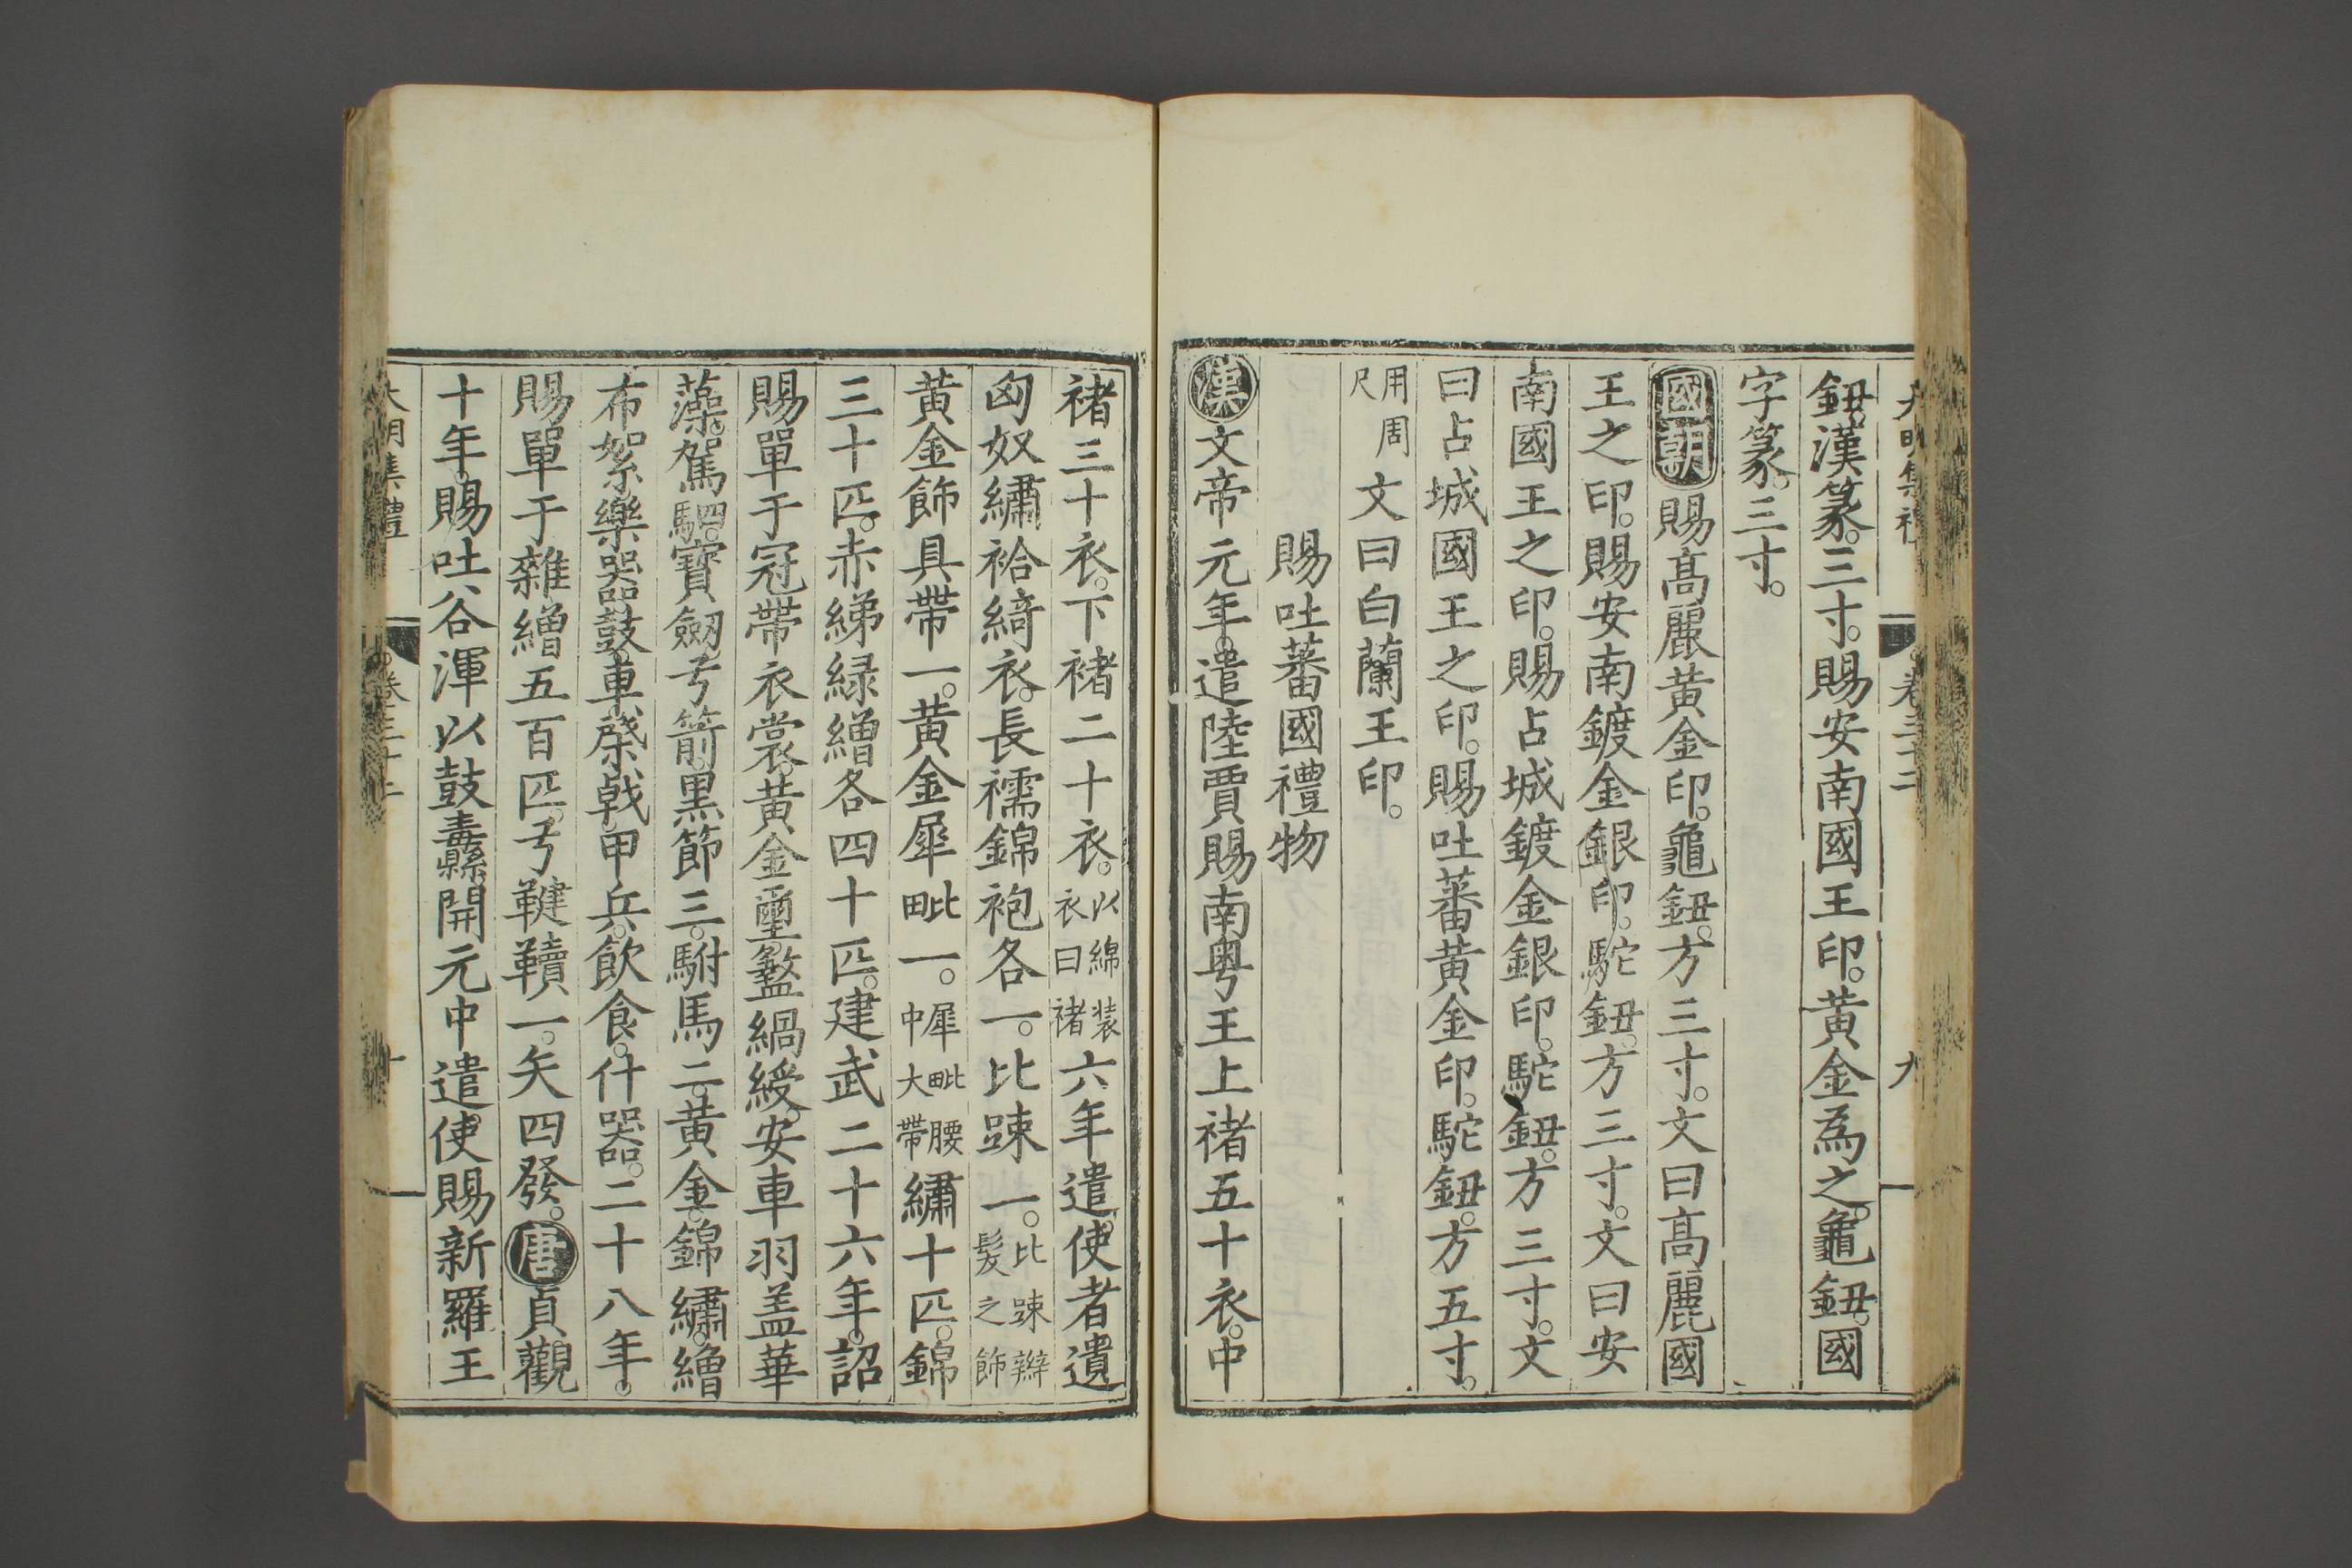 大明集禮 卷三十二 九
鈕。漢篆。三寸。賜安南國王印。黃金為之。龜鈕。國
字篆。三寸。
國朝賜高麗黃金印。龜鈕。方三寸。文曰高麗國
王之印。賜安南鍍金銀印。駝鈕。方三寸。文曰安
南國王之印。賜占城鍍金銀印。駝鈕。方三寸。文
曰占城國王之印。賜吐蕃黃金印。駝鈕。方五寸。
用周尺文曰白蘭王印。
賜吐蕃國禮物
漢文帝元年。遣陸賈賜南粵王上褚五十衣。中
褚三十衣。下褚二十衣。以綿裝衣曰褚六年遣。使者遺
匈奴繡袷綺衣。長襦錦袍各一。比踈一。比踈辮髮之飾
黃金飾具帶一。黃金犀毗一。犀毗腰中大帶繡十匹。錦
三十匹。赤綈緑繒各四十匹。建武二十六年。詔
賜單于冠帶衣裳。黃金璽盭緺綬。安車羽盖華
藻。駕駟。寶劒。弓箭。黒節三。駙馬二。黃金。錦繡。繒
布絮樂器鼓。車。棨戟。甲兵。飲食。什器。二十八年。
賜單于雜繒五百匹。弓鞬韥一。矢四發。唐貞觀
十年。賜吐谷渾以鼓纛。開元中遣使賜新羅王
大明集禮 卷三十二 十